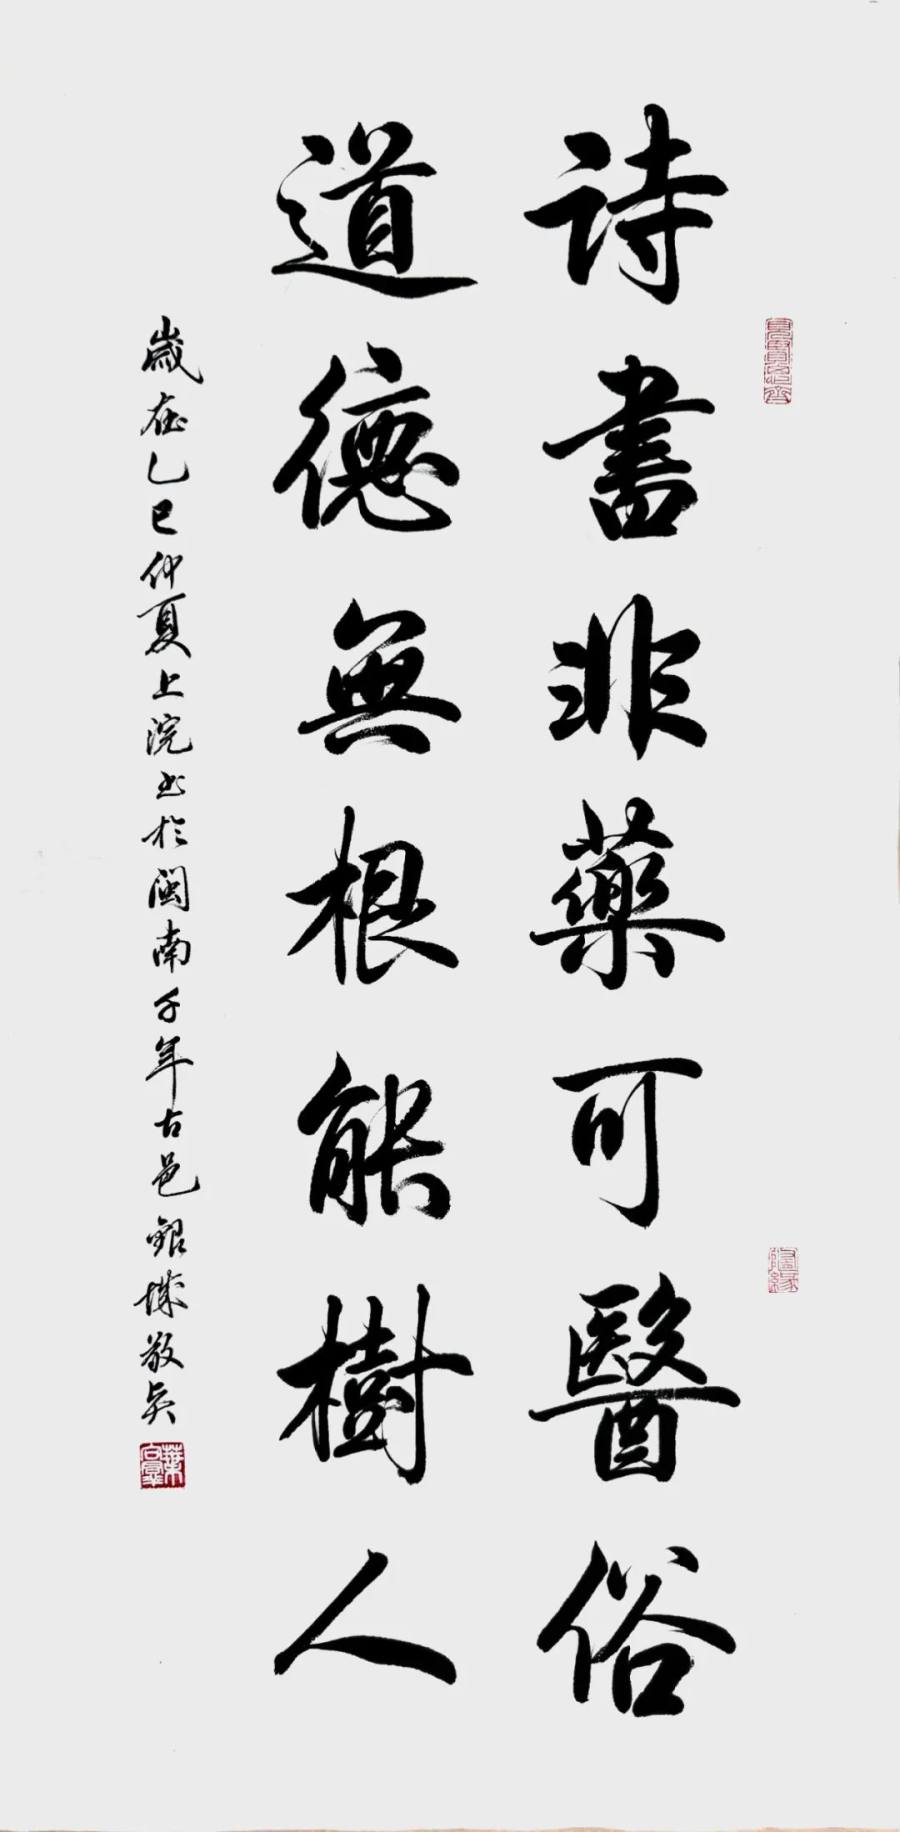 詩書非藥可醫俗
道德無根能樹人
歲在乙巳仲夏上浣書於閩南千年古邑銀城敬吳
葉